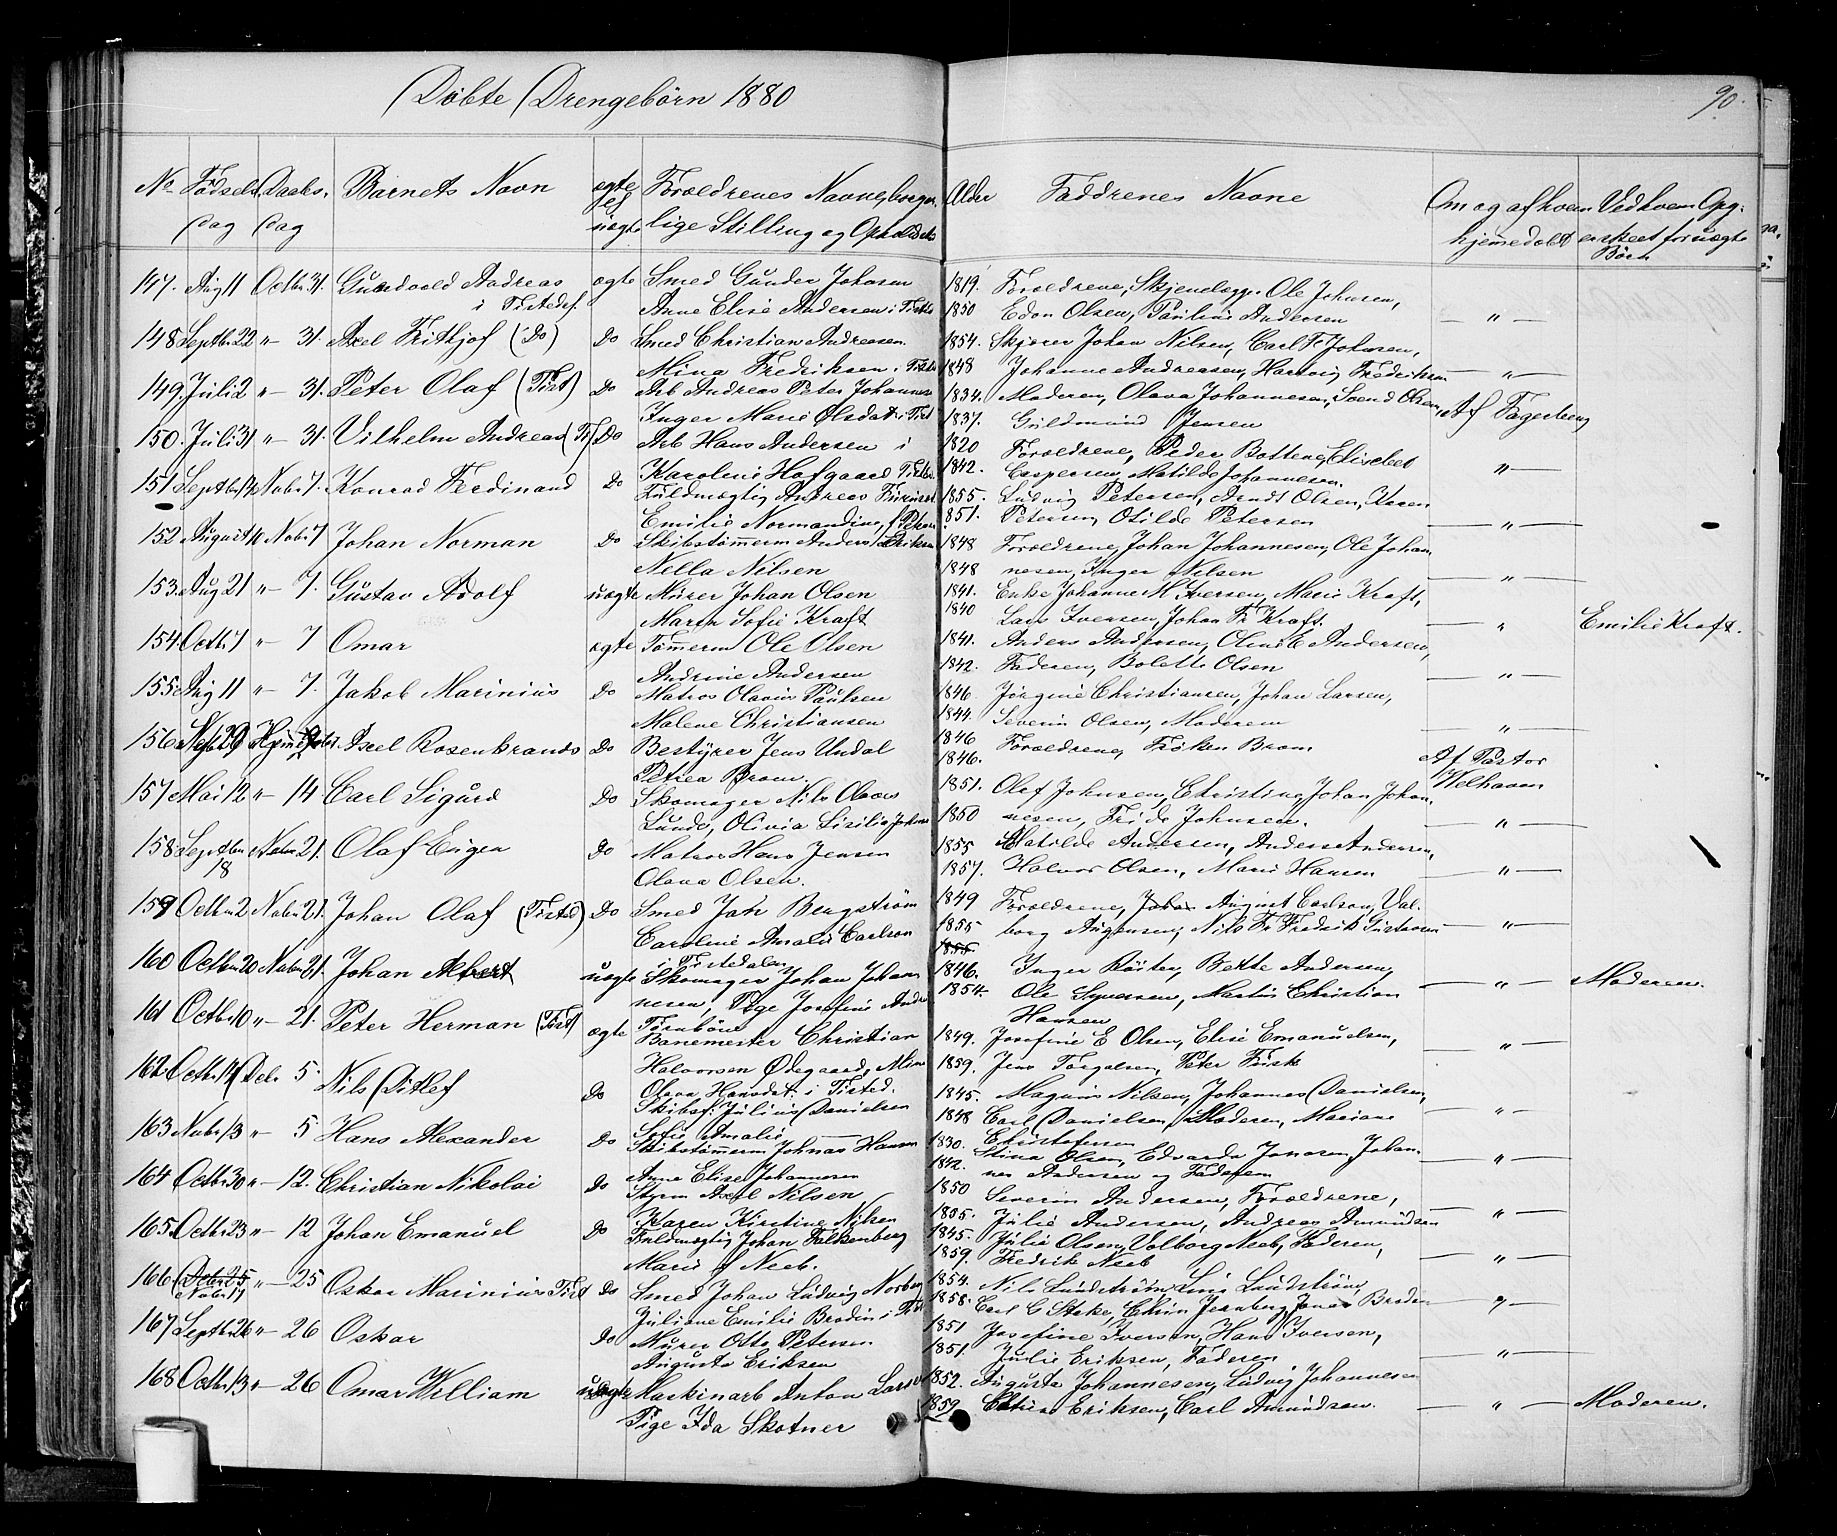 Döbte Drengebörn 1880
90.
No Födsels Daabs- Barnets Navn ægte Forældrenes Navne, borger- Alder Faddrenes Navne Om og af hvem Ved hvem Opg.
Dag Dag ell uægte lige Stilling og Opholds hjemmedöbt er skeet for uægte Börn
147. Aug 11 Octbr 31. Gundvald Andreas ægte Smed Gunder Johnsen 1819. Forældrene, Ole Johnsen,
i Tistedf. Anne Elise Andersen i Tistd 1850 Edon Olsen, Pauline Andersen — " —
148 Septbr 22 " - 31. Axel Fritjof (Do) Do Smed Christian Andreasen 1854. Johan Nilsen, Carl Fr Johnsen,
Mina Fredriksen i Tistd 1848 Johanne Andreasen, Hartvig Fredriksen — " —
149 Juli 2 " - 31. Peter Olaf (Tist) Do Arb Andreas Peter Johannes 1834. Moderen, Olava Johannesen, Svend Olsen,
Inger Marie Olsdat i Tist 1837. Guldmund Jensen Af Fagerberg
150. Juli 31 " - 31. Vilhelm Andreas (Tist) Do Arb Hans Andersen i 1820 Forældrene, Peder Bottene, Elisebet
Karoline Hofgaard Tistd 1842. Caspersen, Matilde Johannesen. " —
151 Septbr 14 Novbr 7. Konrad Ferdinand Do Fuldmægtig Andreas 1855. Ludvig Petersen, Arndt Olsen, Karen
Emilie Normandine f. 1851. Petersen, Otilde Petersen — " —
152 August 10 Novbr 7 Johan Norman Do Skibstömerm Anders Eriksen 1848 Forældrene, Johan Johannesen, Ole Johan
Nella Nilsen 1848 nesen, Inger Nilsen — " —
153. Aug 21 " - 7. Gustav Adolf uægte Murer Johan Olsen 1841. Enke Johanne M. Iversen, Marie Kraft,
Maren Sofie Kraft 1840 Lars Iversen, Johan Fr Kraft. — " — Emilie Kraft.
154 Octbr 7 " - 7 Omar ægte Tömerm Ole Olsen 1841. Anders Andersen, Oline E Andersen,
Andrine Andersen 1842. Faderen, Bolette Olsen — " —
155 Aug 11 " - 7. Jakob Marinius Do Matros Olavus Paulsen 1846. Jörgine Christiansen, Johan Larsen,
Malene Christiansen 1844. Severin Olsen, Moderen — " —
156 Axel Rosenkrands Do Bestyrer Jens Undal 1846 Forældrene, Fröken Brom
Petrea Brom. 1846. Af Pastor Welhaven
157 Mai 12 " - 14 Carl Sigurd Do Skomager Nils Olaves 1851. Olaf Johnsen, Christine, Johan Johan
Lunde, Olivia Sisilie Johnsen 1850 nesen, Fride Johnsen. — " —
158 Septbr 18 Novbr 21. Olaf Eugen Do Matros Hans Jensen 1855 Matilde Andersen, Anders Andersen,
Olava Olsen. 1857. Halvor Olsen, Marie Hansen — " —
159 Octbr 2 Novbr 21. Johan Olaf (Tisted) Do Smed Joh Bergström 1849 Forældrene, Johan August Carlson, Val-
Caroline Amalie Carlson 1855 borg Augensen, Nils Fr Fredrik Gustavsen — " —
i Tistedalen 1855
160 Octbr 20 Novbr 21. Johan Albert uægte Skomager Johan Johan 1846. Inger Röiter, Bette Andersen,
nesen, Pige Josefine Andr 1854. Ole Syversen, Martin Christian — " — Moderen.
Hansen
161 Octbr 10 " - 21. Peter Herman (Tist) ægte Banemester Christian 1849. Josefine E Olsen, Elise Emanuelsen,
Halvorsen Ödegaard, 1859. Jens Torgalsen, Peter Fisk — " —
Olava Hansdat i Tisted.
162 Octbr 14 Debr 5. Nils Ditlef Do Skibsf. Julius Danielsen 1845. Magnus Nilsen, Johannes Danielsen,
Sofie Amalie — 1848 Carl Danielsen, Moderen, Mariane — " —
Christofersen
163 Novbr 13 " - 5 Hans Alexander Do Skibstömerm Johnas Hansen 1830. Stina Olsen, Edvarda Jonasen, Johan
Anne Elise Johannesen 1842. nes Andersen og Faderen — " —
164 Octbr 30 " - 12. Christian Nikolai Do Styrm Axel Nilsen 1850 Severin Andersen, Forældrene,
Karen Kirstine Nilsen 1855. Julie Andersen, Andreas Amundsen — " —
165 Octbr 23 " - 12 Johan Emanuel Do Fuldmægtig Johan Falkenberg 1845. Julie Olsen, Valborg Neeb, Faderen,
Marie f Neeb. 1859. Fredrik Neeb — " —
166 Octbr 25 Novbr 17 " - 25 Oskar Marinius Tist Do Smed Johan Ludvig Norberg 1854. Nils Lundström, Lina Lundström,
Juliane Emilie Brodin i Tist 1858. Carl G Stake, Jernberg, Jonas Broden — " —
167 Septbr 26 " - 26 Oskar Do Murer Otto Petersen 1851 Josefine Iversen, Hans Iversen,
Augusta Eriksen 1851. Julie Eriksen, Faderen — " —
168 Octbr 13 " - 26 Omar William uægte Maskinarb Anton Larsen 1852. Augusta Johannesen, Ludvig Johannesen
Pige Ida Skotner 1859 Eriksen, Carl Amundsen. — " — Moderen.